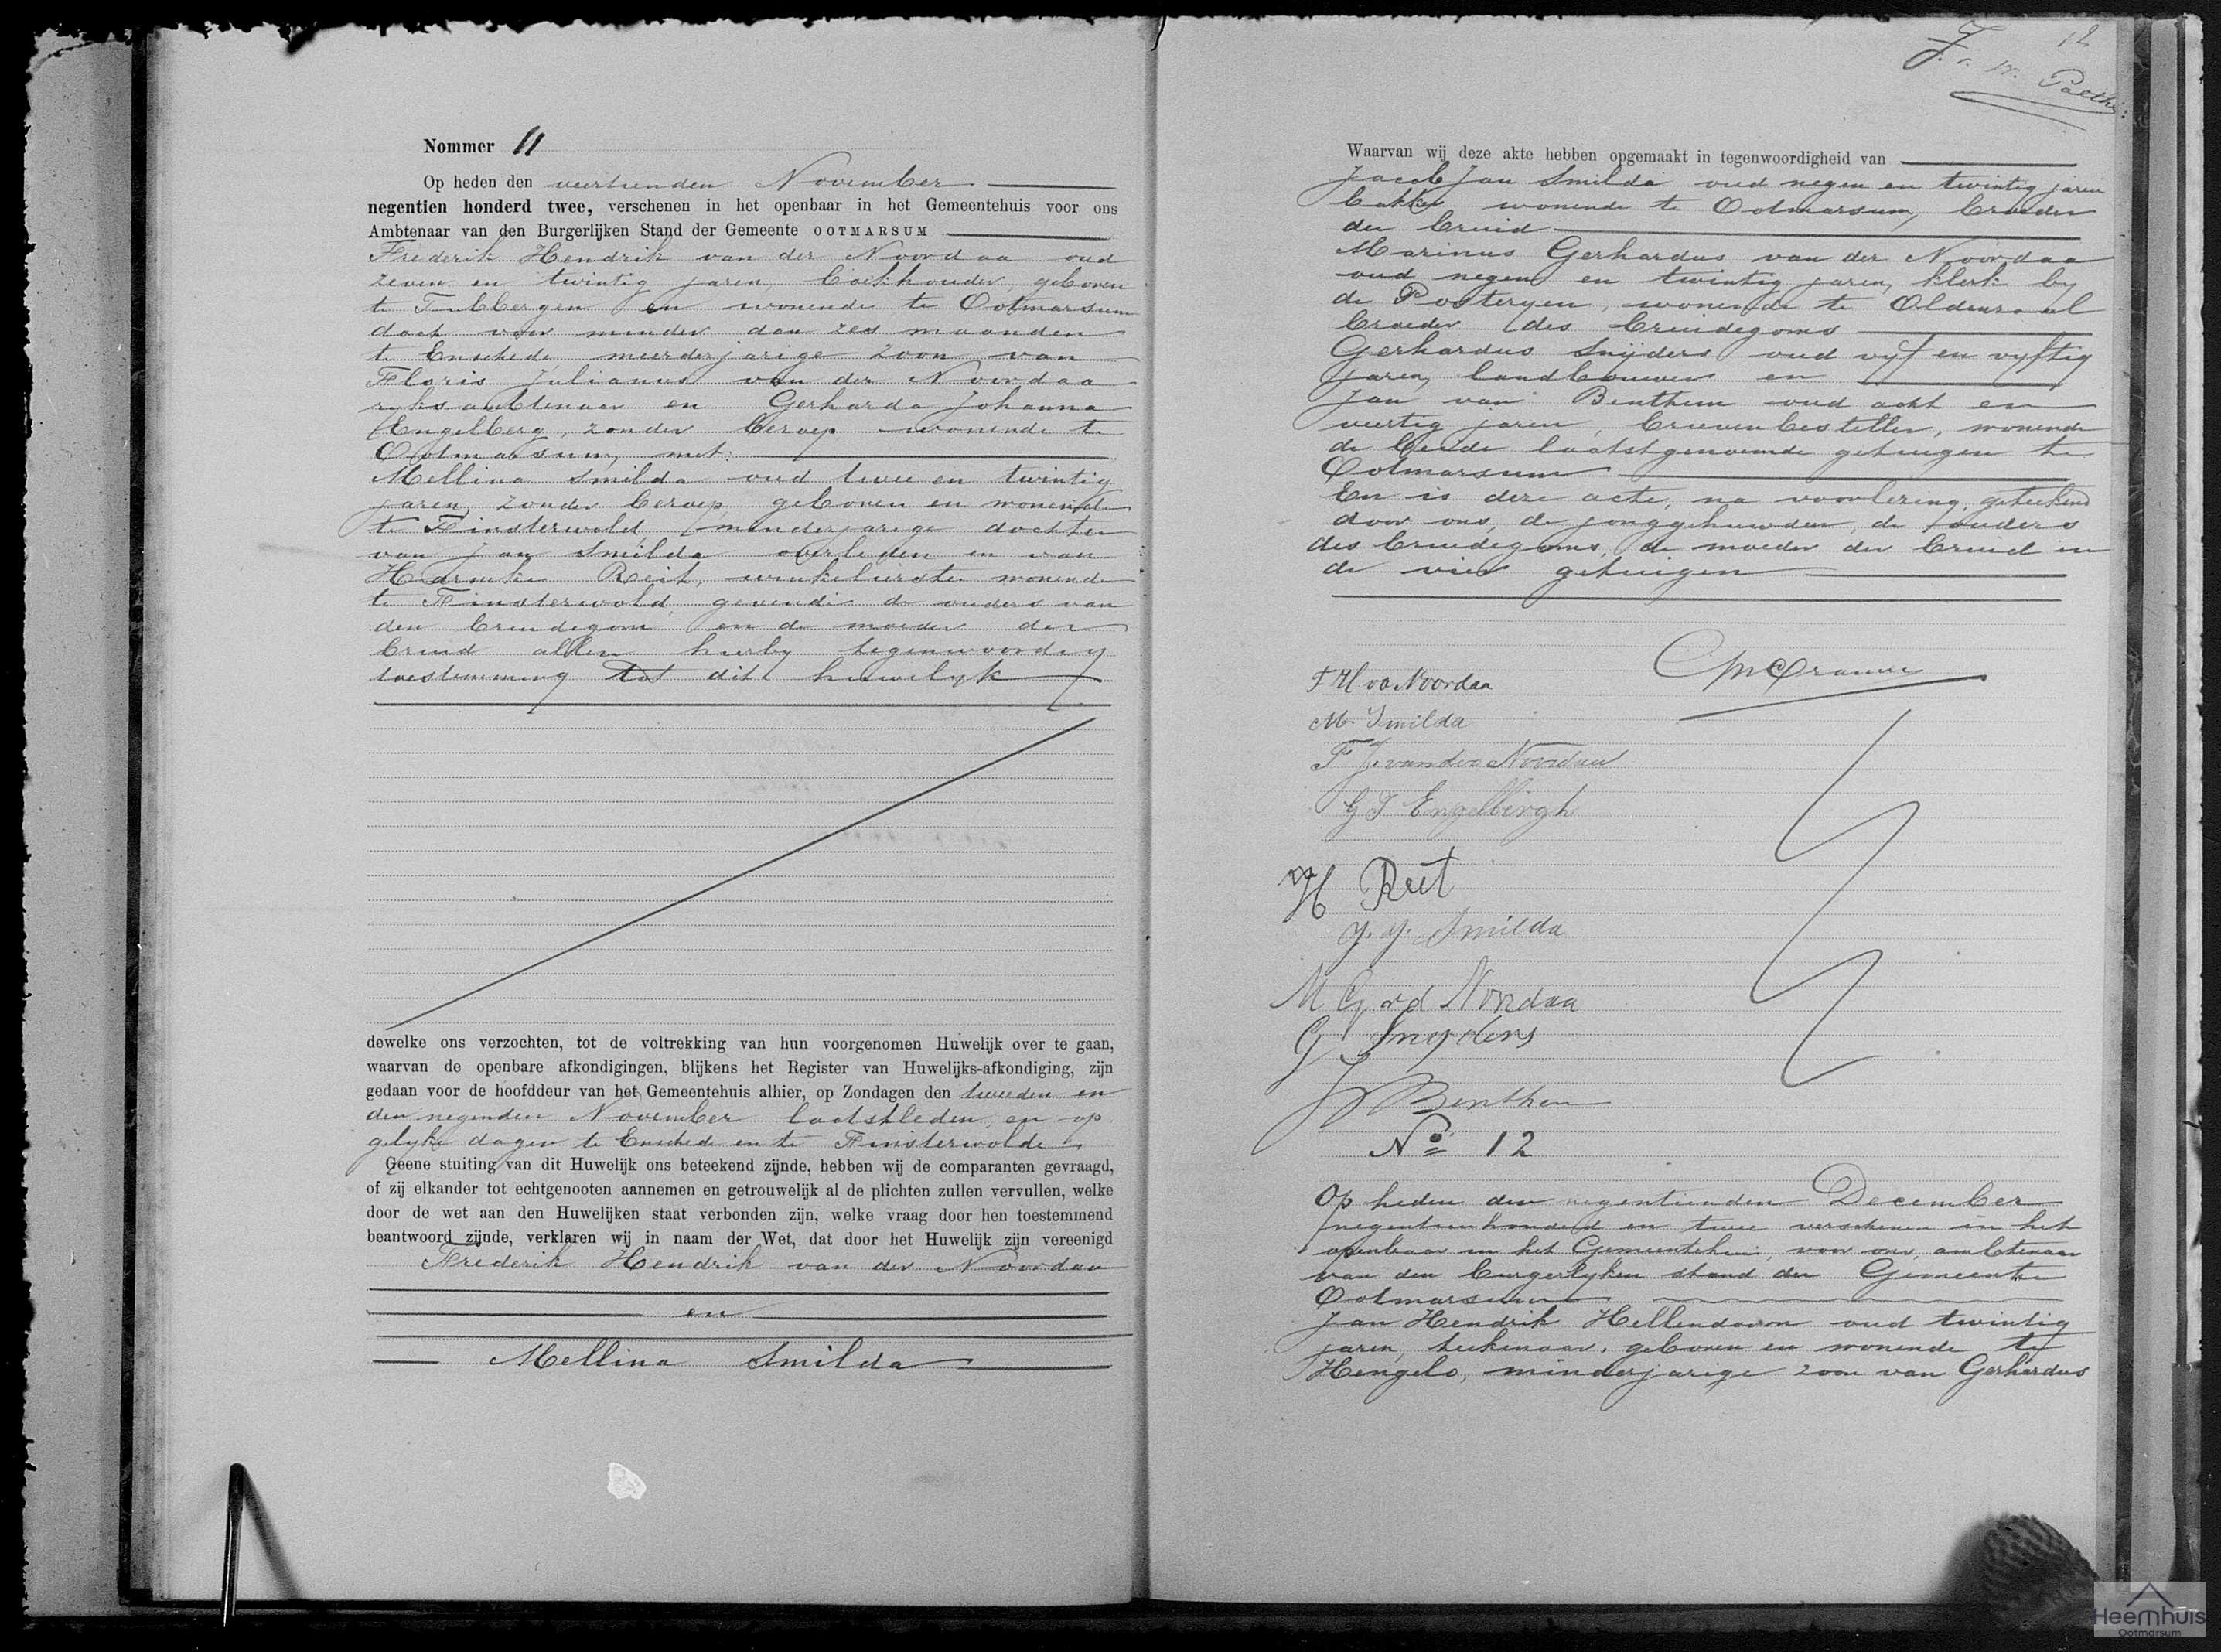 Nommer 11
Op heden den veertienden November
negentien honderd twee, verschenen in het openbaar in het Gemeentehuis voor ons
Ambtenaar van den Burgerlijken Stand der Gemeente OOTMARSUM
Frederik Hendrik van der Noordaa oud
zeven en twintig jaren, boekhouder, geboren
te Tubbergen en wonende te Ootmarsum
doch voor minder dan zes maanden
te Enschede, meerderjarige zoon van
Floris Julianus van der Noordaa
ryksambtenaar en Gerharda Johanna
Engelberg, zonder beroep wonende te
Ootmarsum, met:
Mellina Smilda oud twee en twintig
jaren, zonder beroep, geboren en wonende
te Finsterwold, minderjarige dochter
van Jan Smilda overleden en van
Harmke Reit, winkelierster wonende
te Finsterwold, gevende de ouders van
den bruidegom en de moeder der
bruid allen hierby tegenwoordig
toestemming tot dit huwelyk
dewelke ons verzochten, tot de voltrekking van hun voorgenomen Huwelijk over te gaan,
waarvan de openbare afkondigingen, blijkens het Register van Huwelijks-afkondiging, zijn
gedaan voor de hoofddeur van het Gemeentehuis alhier, op Zondagen den tweeden en
den negenden November laatstleden, en op
gelyke dagen te Enschede en te Finsterwolde.
Geene stuiting van dit Huwelijk ons beteekend zijnde, hebben wij de comparanten gevraagd,
of zij elkander tot echtgenooten aannemen en getrouwelijk al de plichten zullen vervullen, welke
door de wet aan den Huwelijken staat verbonden zijn, welke vraag door hen toestemmend
beantwoord zijnde, verklaren wij in naam der Wet, dat door het Huwelijk zijn vereenigd
Frederik Hendrik van der Noordaa
en
Mellina Smilda
12
Waarvan wij deze akte hebben opgemaakt in tegenwoordigheid van
Jacob Jan Smilda oud negen en twintig jaren
bakker wonende te Ootmarsum, broeder
der bruid
Marinus Gerhardus van der Noordaa
oud negen en twintig jaren, klerk by
de Posteryen, wonende te Oldenzaal
broeder des bruidegoms
Gerhardus Snijders oud vyf en vyftig
jaren, landbouwer en
Jan van Benthem oud acht en
veertig jaren, brievenbesteller, wonende
de beide laatstgenoemde getuigen te
Ootmarsum
En is deze acte, na voorlezing, geteekend
door ons, de jonggehuwden, de ouders
des bruidegoms, de moeder der bruid en
de vier getuigen
F H vd Noordaa
M. Smilda
F J. van der Noordaa
G J Engelbergh
H Reit
J. J. Smilda
M G v d Noordaa
G Snyders
J v Benthem
No 12
Op heden den negentienden December
negentienhonderd en twee verschenen in het
openbaar in het Gemeentehuis, voor ons, ambtenaar
van den burgerlyken stand der Gemeente
Ootmarsum
Jan Hendrik Hellendoorn oud twintig
jaren, teekenaar, geboren en wonende te
Hengelo, minderjarige zoon van Gerhardus
Heemhuis
Ootmarsum